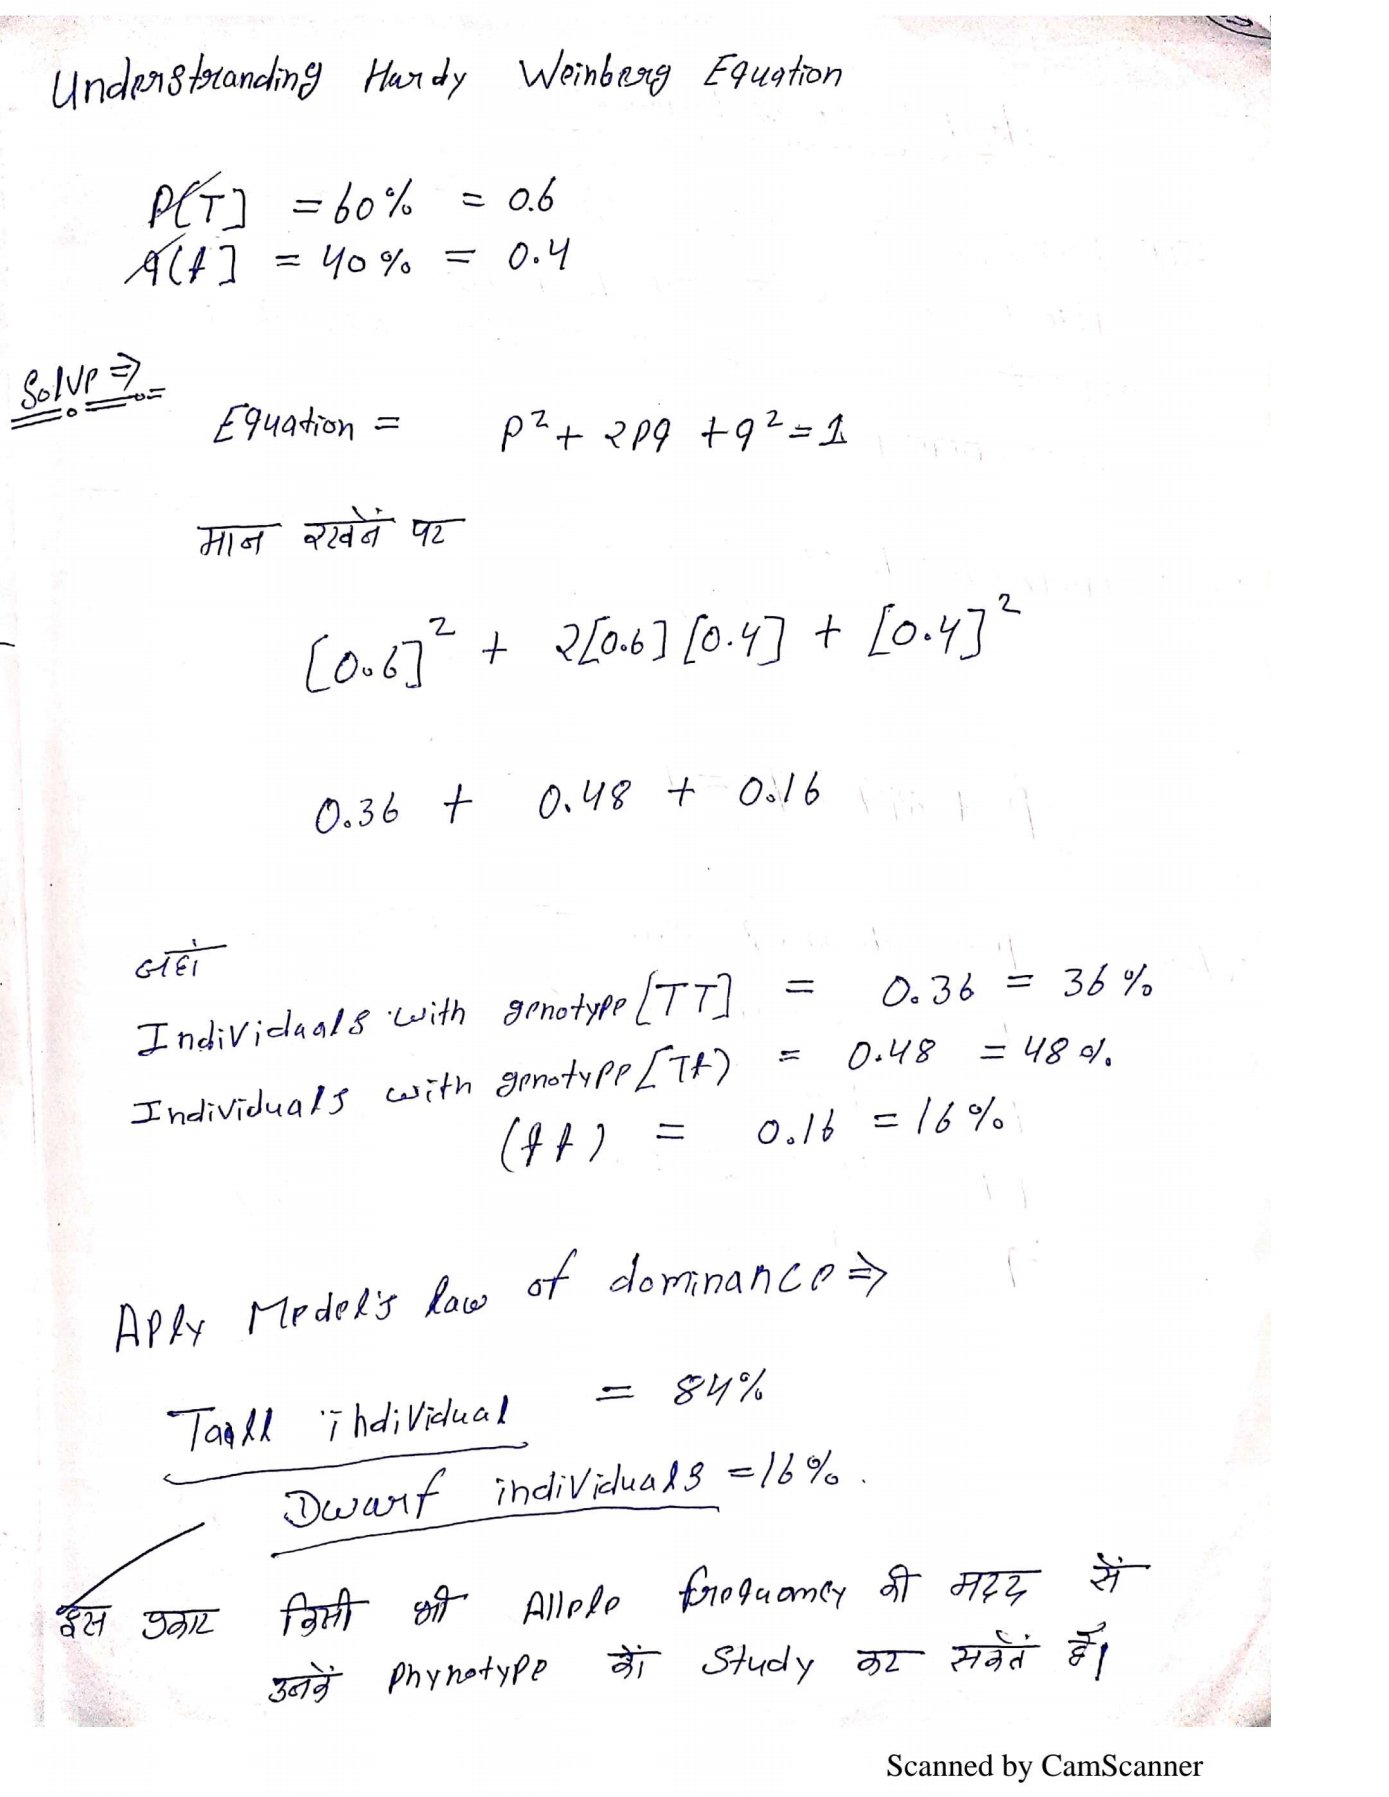 Understranding Hardy Weinberg Equation
P[T] = 60% = 0.6
q[t] = 40% = 0.4
Solve ⇒
Equation = p² + 2pq + q² = 1
मान रखनें पर
[0.6]² + 2[0.6][0.4] + [0.4]²
0.36 + 0.48 + 0.16
जहां
Individuals with genotype [TT] = 0.36 = 36%
Individuals with genotype [Tt) = 0.48 = 48%
(tt) = 0.16 = 16%
Aply Medel's law of dominance ⇒
Taall individual = 84%
Dwarf individuals = 16%.
इस प्रकार किसी भी Allele frequency की मदद सें
उनकें Phynotype कों Study कर सकेतें हैं।
Scanned by CamScanner